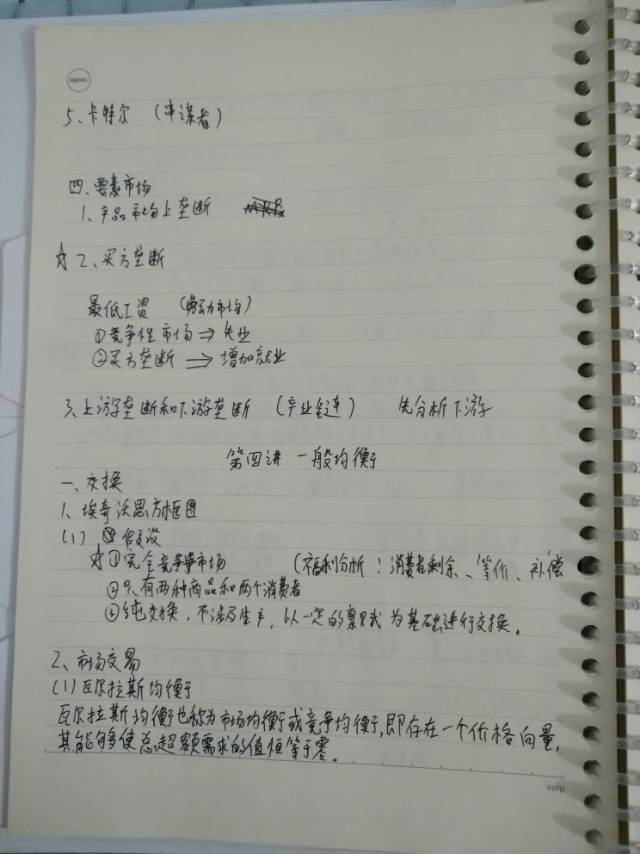 5、卡特尔 (串谋者)
四、要素市场
1、产品市场上垄断
☆ 2、买方垄断
最低工资 (劳动市场)
①竞争性市场⇒失业
②买方垄断⇒增加就业
3、上游垄断和下游垄断 (产业链) 先分析下游
第四讲 一般均衡
一、交换
1、埃奇沃思方框图
(1) 假设
☆①完全竞争市场 (福利分析:消费者剩余、等价、补偿
②只有两种商品和两个消费者
③纯交换,不涉及生产,以一定的禀赋为基础进行交换。
2、市场交易
(1)瓦尔拉斯均衡
瓦尔拉斯均衡也称为市场均衡或竞争均衡,即存在一个价格向量,
其能够使总超额需求的值恒等于零。
date